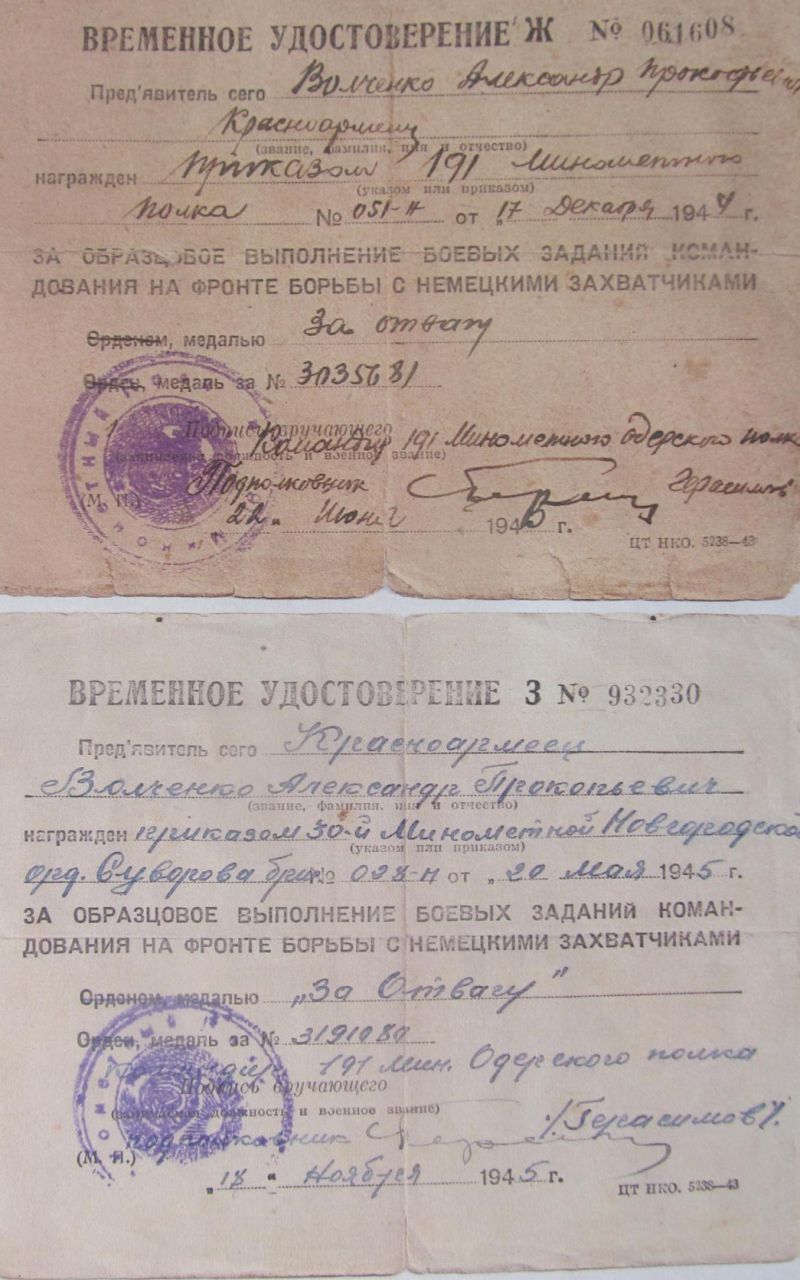 ВРЕМЕННОЕ УДОСТОВЕРЕНИЕ Ж № 061608
Пред'явитель сего Волченко Александр Прокофьевич
Красноармеец
(звание, фамилия, имя и отчество)
награжден приказом 191 Минометного
(указом или приказом)
полка № 051-Н от „17 Декабря 1944 г.
ЗА ОБРАЗЦОВОЕ ВЫПОЛНЕНИЕ БОЕВЫХ ЗАДАНИЙ КОМАН-
ДОВАНИЯ НА ФРОНТЕ БОРЬБЫ С НЕМЕЦКИМИ ЗАХВАТЧИКАМИ
Орденом, медалью За отвагу
Орден, медаль за № 3035681
Подпись вручающего
Командир 191 Минометного Одерского полка
(занимаемая должность и военное звание)
Подполковник Герасимов
(М. П.)
22 „ Июня 1945 г.
ЦТ НКО. 5238—43
ВРЕМЕННОЕ УДОСТОВЕРЕНИЕ З № 932330
Пред'явитель сего Красноармеец
Волченко Александр Прокопьевич
(звание, фамилия, имя и отчество)
награжден приказом 30-й Минометной Новгородской
(указом или приказом)
орд. Суворова бриг № 028-Н от „20 Мая 1945 г.
ЗА ОБРАЗЦОВОЕ ВЫПОЛНЕНИЕ БОЕВЫХ ЗАДАНИЙ КОМАН-
ДОВАНИЯ НА ФРОНТЕ БОРЬБЫ С НЕМЕЦКИМИ ЗАХВАТЧИКАМИ
Орденом, медалью „За Отвагу"
Орден, медаль за № 3191080
Командир 191 Мин. Одерского полка
Подпись вручающего
(занимаемая должность и военное звание)
подполковник /Герасимов/
(М. П.)
„18 " Ноября 1945 г.
ЦТ НКО. 5238—43